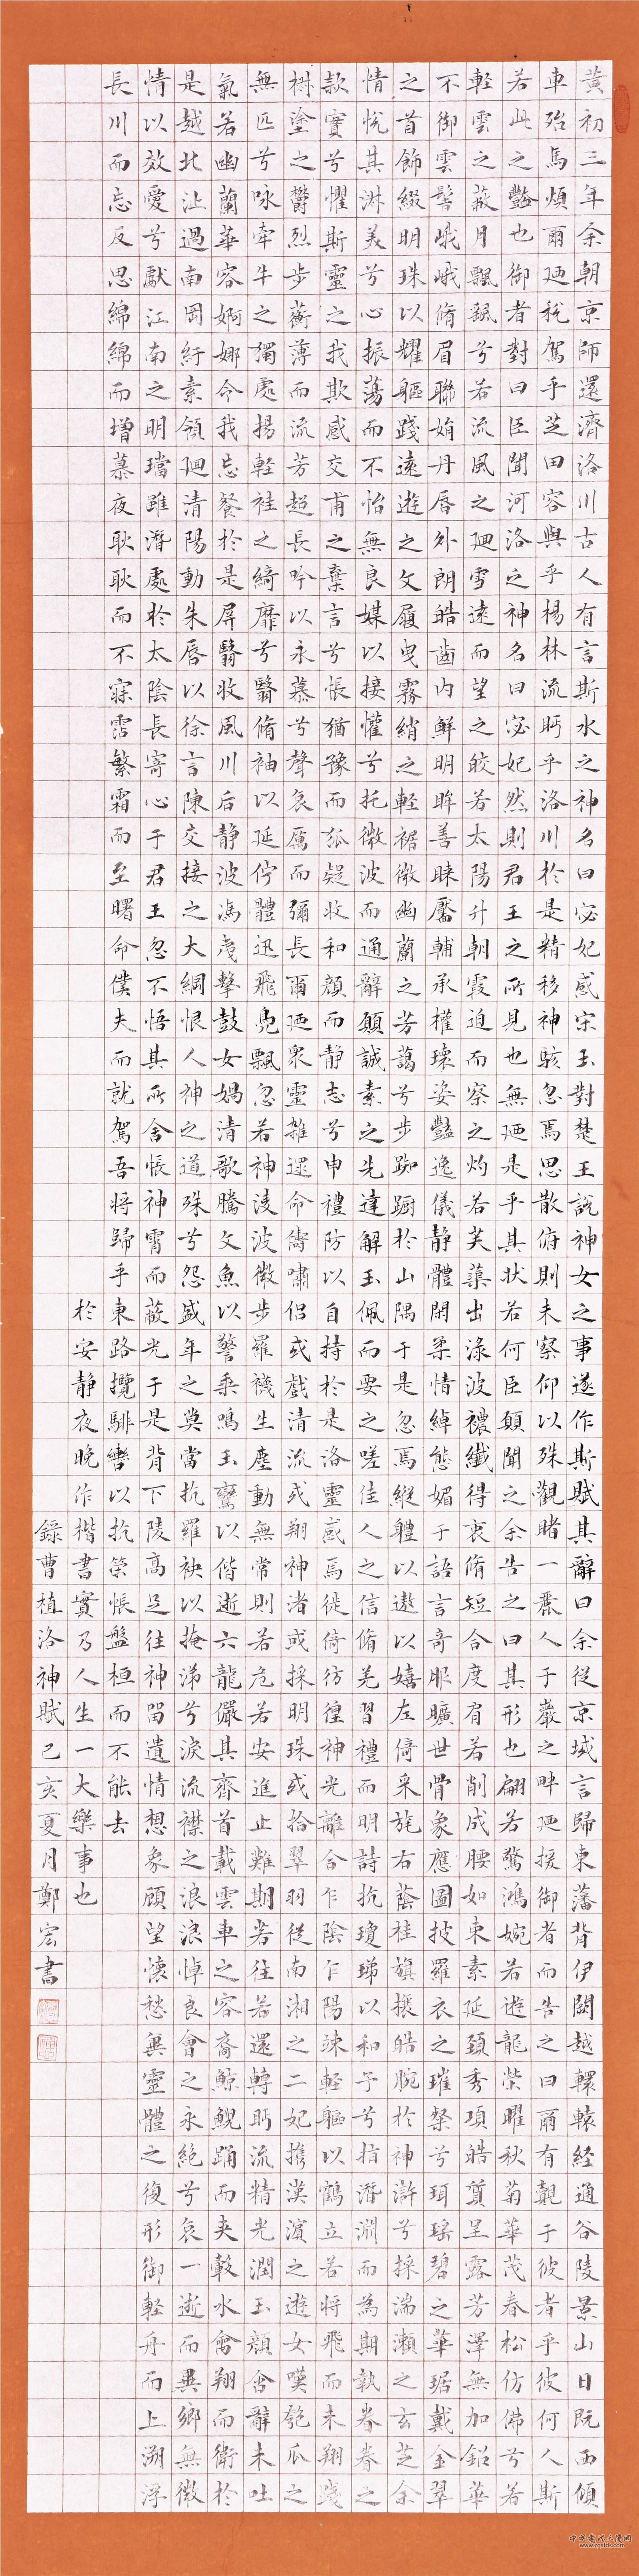 黃初三年余朝京師還濟洛川古人有言斯水之神名曰宓妃感宋玉對楚王說神女之事遂作斯賦其辭曰余從京域言歸東藩背伊闕越轘轅経通谷陵景山日既西傾
車殆馬煩爾廼稅駕乎芝田容與乎楊林流眄乎洛川於是精移神駭忽焉思散俯則未察仰以殊觀睹一麗人于巖之畔廼援御者而告之曰爾有覿于彼者乎彼何人斯
若此之豔也御者對曰臣聞河洛之神名曰宓妃然則君王之所見也無廼是乎其狀若何臣願聞之余告之曰其形也翩若驚鴻婉若遊龍榮曜秋菊華茂春松仿佛兮若
輕雲之蔽月飄颻兮若流風之廻雪遠而望之皎若太陽升朝霞迫而察之灼若芙蕖出淥波襛纖得衷脩短合度肩若削成腰如束素延頸秀項皓質呈露芳澤無加鉛華
不御雲髻峨峨脩眉聯娟丹唇外朗皓齒內鮮明眸善睞靨輔承權瓌姿豔逸儀靜體閑柔情綽態媚于語言奇服曠世骨象應圖披羅衣之璀粲兮珥瑤碧之華琚戴金翠
之首飾綴明珠以耀軀踐遠遊之文履曳霧綃之輕裾微幽蘭之芳藹兮步踟躕於山隅于是忽焉縱軆以遨以嬉左倚采旄右蔭桂旗攘皓腕於神滸兮採湍瀬之玄芝余
情悅其淋美兮心振蕩而不怡無良媒以接懽兮托微波而通辭願誠素之先達解玉佩而要之嗟佳人之信脩羌習禮而明詩抗瓊珶以和予兮指潛淵而為期執眷眷之
款實兮懼斯靈之我欺感交甫之棄言兮悵猶豫而狐疑收和顏而靜志兮申禮防以自持於是洛靈感焉徙倚彷徨神光離合乍陰乍陽竦輕軀以鶴立若將飛而未翔踐
椒塗之鬱烈步蘅薄而流芳超長吟以永慕兮聲哀厲而彌長爾廼眾靈雜遝命儔嘯侶或戲清流或翔神渚或採明珠或拾翠羽從南湘之二妃攜漢濱之遊女嘆匏瓜之
無匹兮咏牽牛之獨處揚輕袿之綺靡兮翳脩袖以延佇體迅飛鳧飄忽若神淩波微步羅襪生塵動無常則若危若安進止難期若往若還轉眄流精光潤玉顏含辭未吐
氣若幽蘭華容婀娜令我忘餐於是屏翳收風川后靜波馮夷擊鼓女媧清歌騰文魚以警乘鳴玉鸞以偕逝六龍儼其齊首載雲車之容裔鯨鯢踊而夾轂水禽翔而衛於
是越北沚過南岡紆素領廻清陽動朱唇以徐言陳交接之大綱恨人神之道殊兮怨盛年之莫當抗羅袂以掩涕兮淚流襟之浪浪悼良會之永絕兮哀一逝而異鄉無微
情以效愛兮獻江南之明璫雖潛處於太陰長寄心于君王忽不悟其所舍悵神霄而蔽光于是背下陵高足往神留遺情想象顧望懷愁冀靈體之復形御輕舟而上溯浮
長川而忘反思綿綿而增慕夜耿耿而不寐霑繁霜而至曙命僕夫而就駕吾將歸乎東路攬騑轡以抗榮悵盤桓而不能去
於安靜夜晚作楷書實乃人生一大樂事也
錄曹植洛神賦己亥夏月鄭宏書
www.zgsfds.com